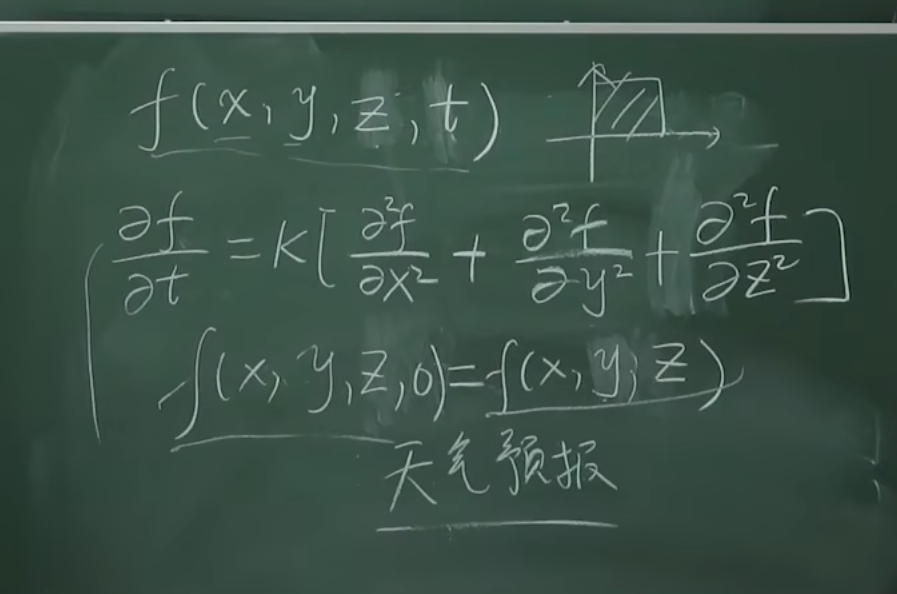 f(x, y, z, t)
∂f/∂t = K[∂²f/∂x² + ∂²f/∂y² + ∂²f/∂z²]
f(x, y, z, 0) = f(x, y, z)
天气预报